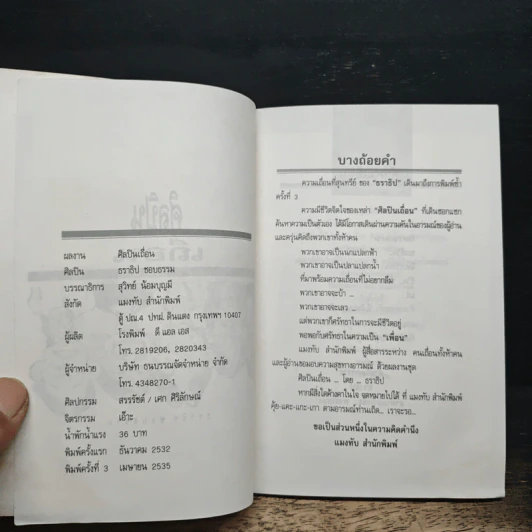 ผลงาน ศิลปินเถื่อน
ศิลปิน ธราธิป ชอบธรรม
บรรณาธิการ สุวิทย์ น้อมบุญมี
สังกัด แมงทับ สำนักพิมพ์
ตู้ ปณ.4 ปทฝ. ดินแดง กรุงเทพฯ 10407
ผู้ผลิต โรงพิมพ์ ดี แอล เอส
โทร. 2819206, 2820343
ผู้จำหน่าย บริษัท ธนบรรณจัดจำหน่าย จำกัด
โทร.4348270-1
ศิลปกรรม สรรรัชต์ / เศก ศิริลักษณ์
จิตรกรรม เอ๊าะ
น้ำพักน้ำแรง 36 บาท
พิมพ์ครั้งแรก ธันวาคม 2532
พิมพ์ครั้งที่ 3 เมษายน 2535
บางถ้อยคำ
ความเถื่อนที่สุนทรีย์ ของ "ธราธิป" เดินมาถึงการพิมพ์ซ้ำ
ครั้งที่ 3
ความมีชีวิตจิตใจของเหล่า "ศิลปินเถื่อน" ที่เดินซอกแซก
ค้นหาความเป็นตัวเอง ได้มีโอกาสเดินผ่านความคันในอารมณ์ของผู้อ่าน
และครุ่นคิดถึงพวกเขาทั้งห้าคน
พวกเขาอาจเป็นนกแปลกฟ้า
พวกเขาอาจเป็นปลาแปลกน้ำ
ที่มาพร้อมความเถื่อนที่ไม่อยากลืม
พวกเขาอาจจะบ้า ...
พวกเขาอาจจะเลว ...
แต่พวกเขาก็ศรัทธาในการจะมีชีวิตอยู่
พอพอกับศรัทธาในความเป็น "เพื่อน"
แมงทับ สำนักพิมพ์ ผู้สื่อสารระหว่าง คนเถื่อนทั้งห้าคน
และผู้อ่านขอมอบความสุขทางอารมณ์ ด้วยผลงานชุด
ศิลปินเถื่อน ... โดย ... ธราธิป
หากมีสิ่งใดค้างคาในใจ จดหมายไปได้ ที่ แมงทับ สำนักพิมพ์
คุ้ย-แคะ-แกะ-เกา ตามอารมณ์ท่านเถิด... เราจะรอ...
ขอเป็นส่วนหนึ่งในความคิดคำนึง
แมงทับ สำนักพิมพ์